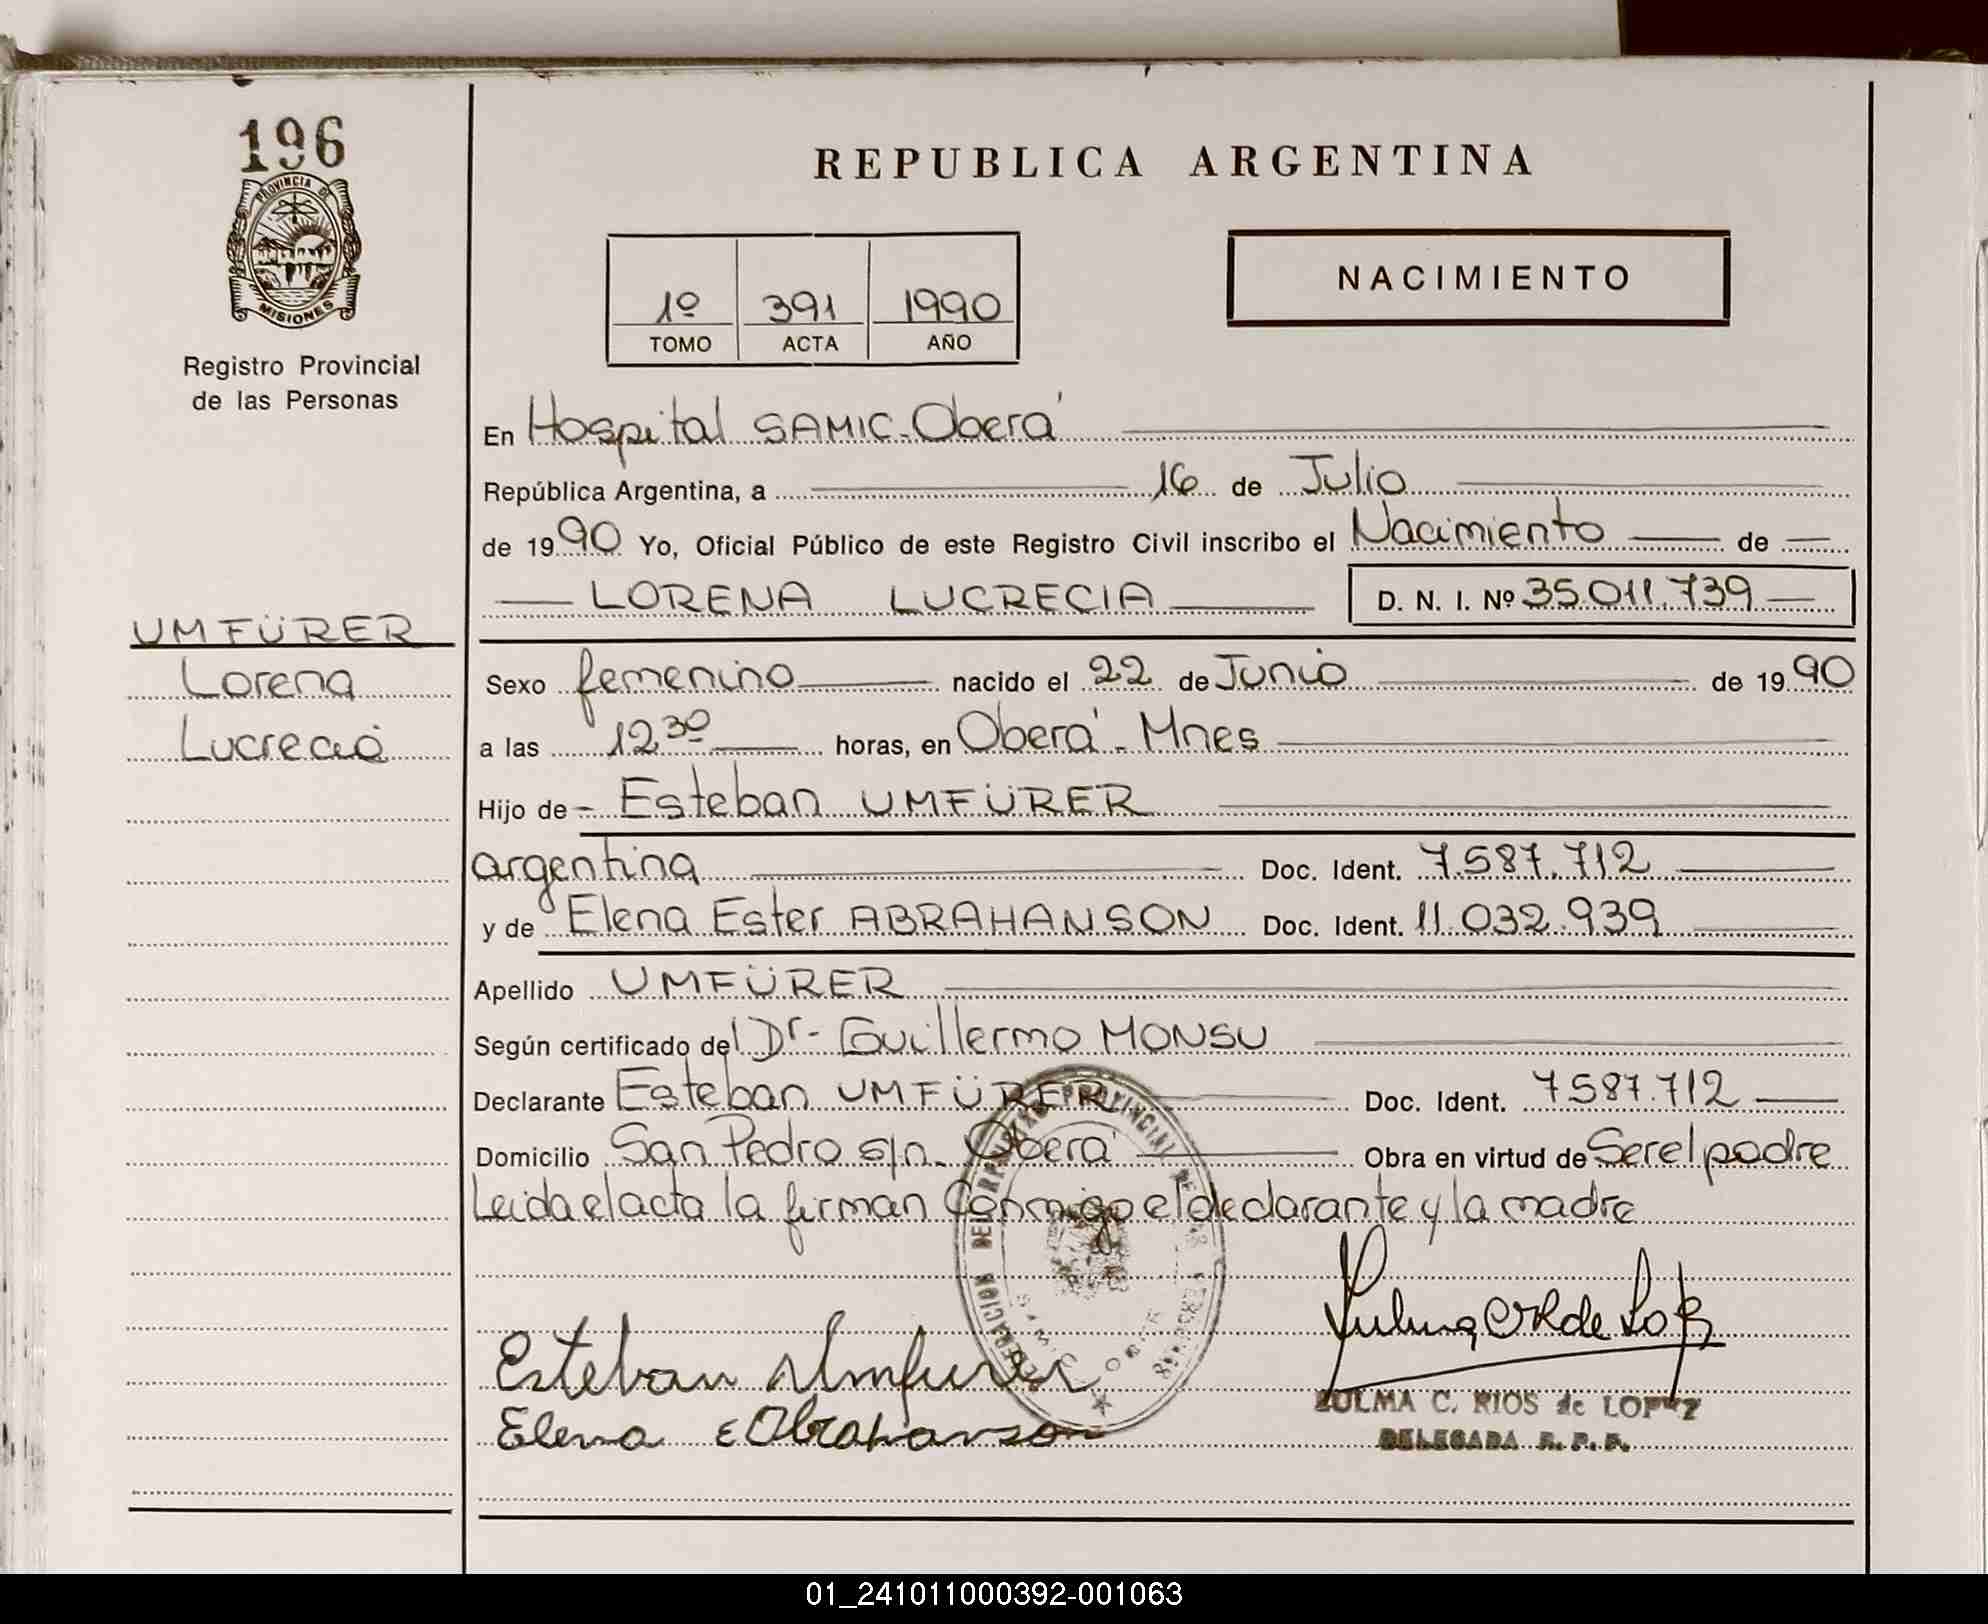 196
PROVINCIA DE
MISIONES
Registro Provincial
de las Personas
REPUBLICA ARGENTINA
1º 391 1990
TOMO ACTA AÑO
NACIMIENTO
En Hospital SAMIC-Oberá
República Argentina, a 16 de Julio
de 1990 Yo, Oficial Público de este Registro Civil inscribo el Nacimiento de
LORENA LUCRECIA D. N. I. Nº 35.011.739
UMFÜRER
Lorena
Lucrecia
Sexo femenino nacido el 22 de Junio de 1990
a las 12,30 horas, en Oberá - Mnes
Hijo de Esteban UMFÜRER
argentina Doc. Ident. 7.587.712
y de Elena Ester ABRAHANSON Doc. Ident. 11.032.939
Apellido UMFÜRER
Según certificado del Dr- Guillermo MONSU
Declarante Esteban UMFÜRER Doc. Ident. 7587.712
Domicilio San Pedro s/n. Oberá Obra en virtud de Ser el padre
Leida el acta la firman conmigo el declarante y la madre
Esteban Umfurer
Elena E Abrahanson
ZULMA C. RIOS de LOPEZ
DELEGADA R. P. P.
01_241011000392-001063